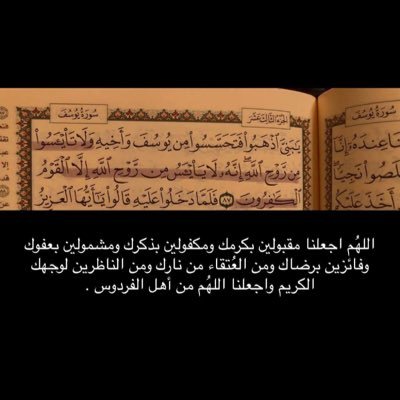 سورة يوسف
الجزء الثالث عشر
سورة يوسف
يَٰبَنِىَّ ٱذۡهَبُواْ فَتَحَسَّسُواْ مِن يُوسُفَ وَأَخِيهِ وَلَا تَاْيۡـَٔسُواْ
مِن رَّوۡحِ ٱللَّهِۖ إِنَّهُۥ لَا يَاْيۡـَٔسُ مِن رَّوۡحِ ٱللَّهِ إِلَّا ٱلۡقَوۡمُ
ٱلۡكَٰفِرُونَ ٨٧ فَلَمَّا دَخَلُواْ عَلَيۡهِ قَالُواْ يَٰٓأَيُّهَا ٱلۡعَزِيزُ
اللهُم اجعلنا مقبولين بكرمك ومكفولين بذكرك ومشمولين بعفوك
وفائزين برضاك ومن العُتقاء من نارك ومن الناظرين لوجهك
الكريم واجعلنا اللهُم من أهل الفردوس .